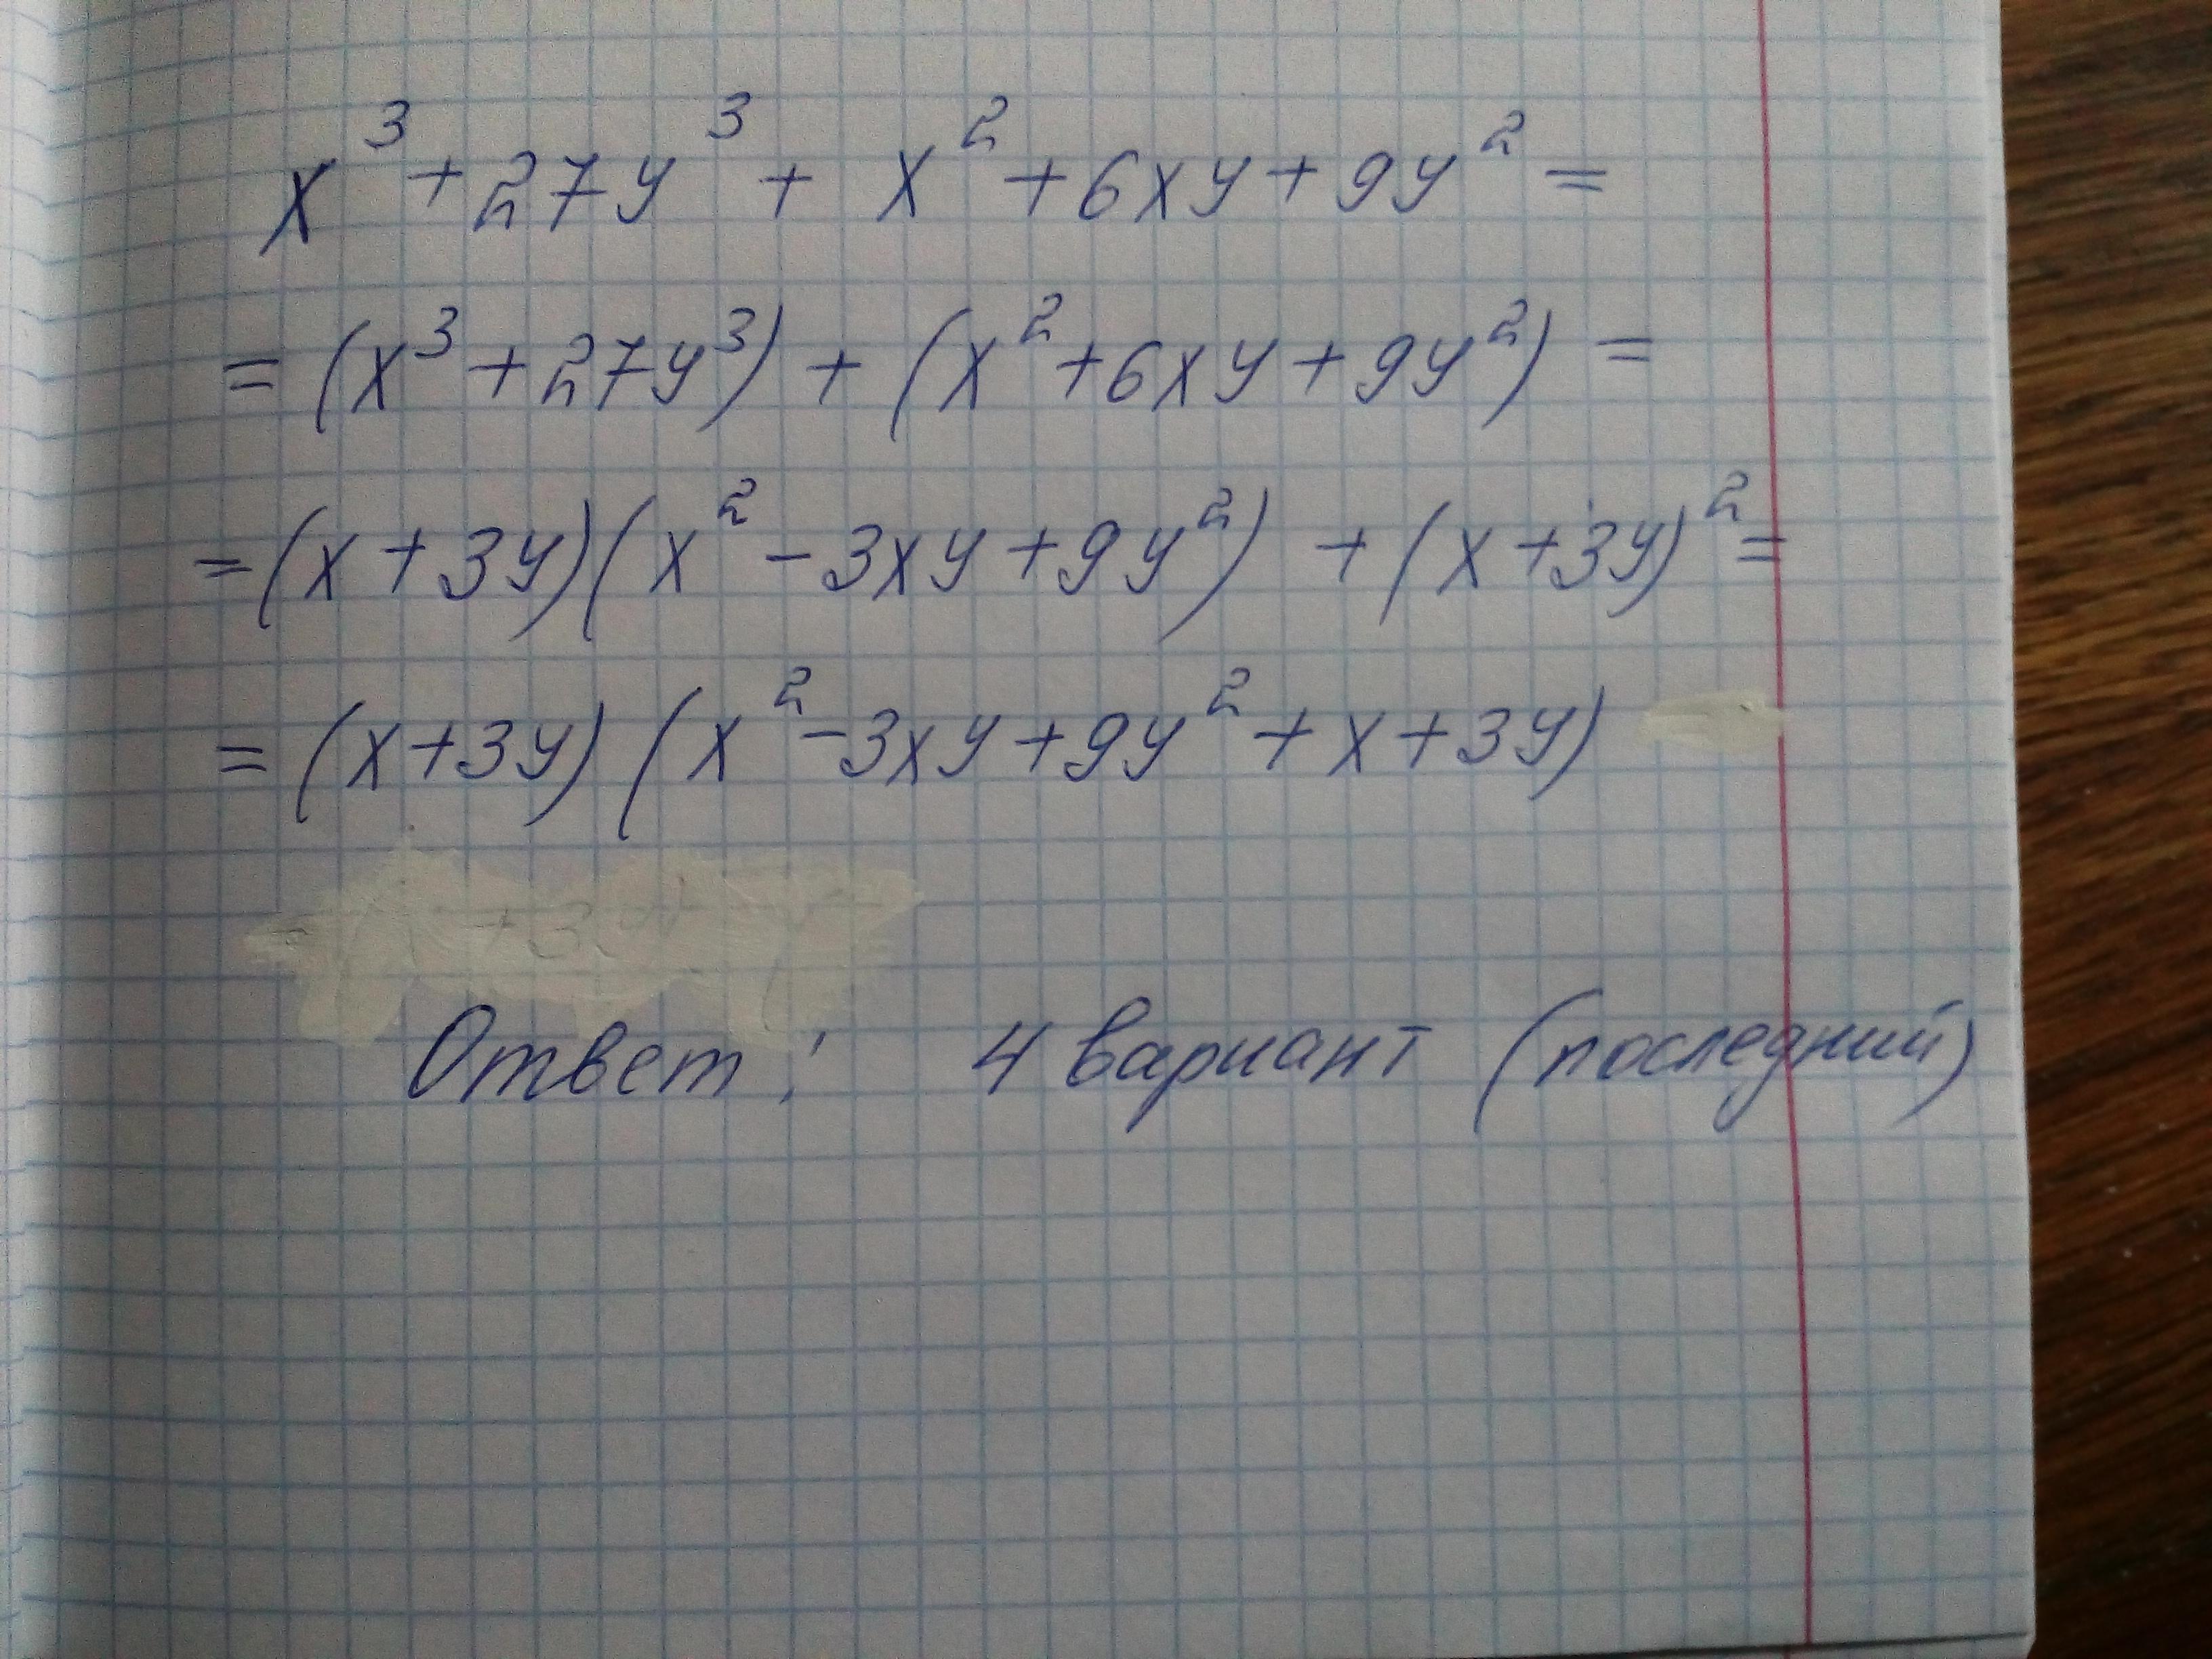 x³ + 27y³ + x² + 6xy + 9y² =
= (x³ + 27y³) + (x² + 6xy + 9y²) =
= (x + 3y)(x² - 3xy + 9y²) + (x + 3y)² =
= (x + 3y)(x² - 3xy + 9y² + x + 3y)
Ответ: 4 вариант (последний)